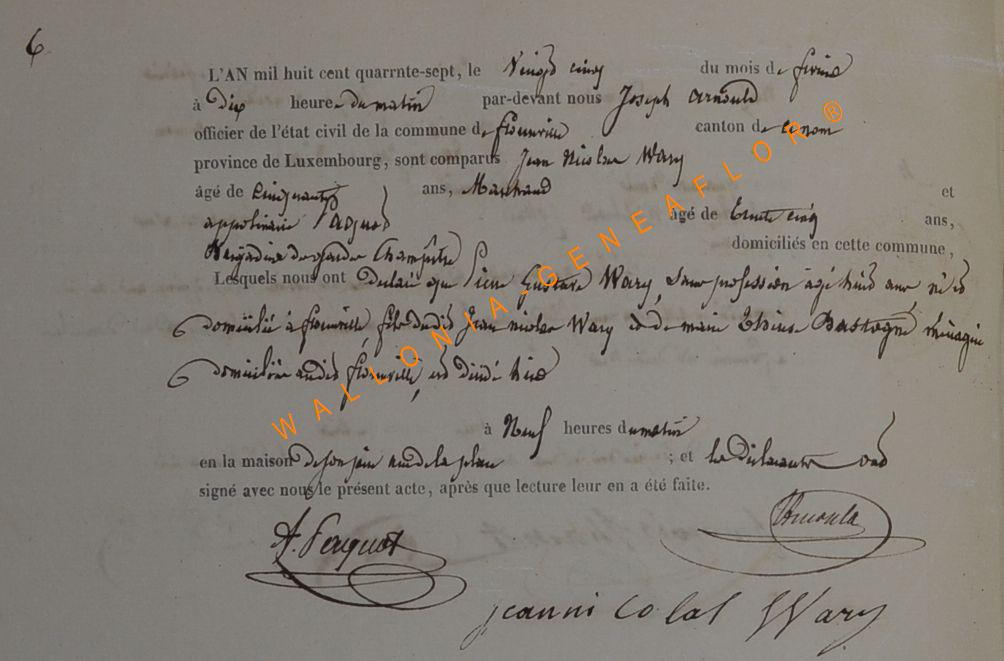 6
L'AN mil huit cent quarrnte-sept, le Vingt cinq du mois de fevrier
à Dix heures du matin par-devant nous Joseph Arnould
officier de l'état civil de la commune de florenville canton de ce nom
province de Luxembourg, sont comparus Jean Nicolas Wary
âgé de Cinquante ans, Marchand et
appolinaire âgé de trente cinq ans,
Brigadier de garde Champêtre domiciliés en cette commune,
Lesquels nous ont déclaré que Pierre Gustave Wary, sans profession âgé ans, né et
domicilié à florenville, fils dudit Jean nicolas Wary et de marie Bastogne ménagère
domiciliée audit florenville, est décédé hier
à Neuf heures du matin
en la maison de son père rue de la place ; et les déclarants ont
signé avec nous le présent acte, après que lecture leur en a été faite.
Arnould
jeanni colas Wary
WALLONIA-GENEAFLOR®